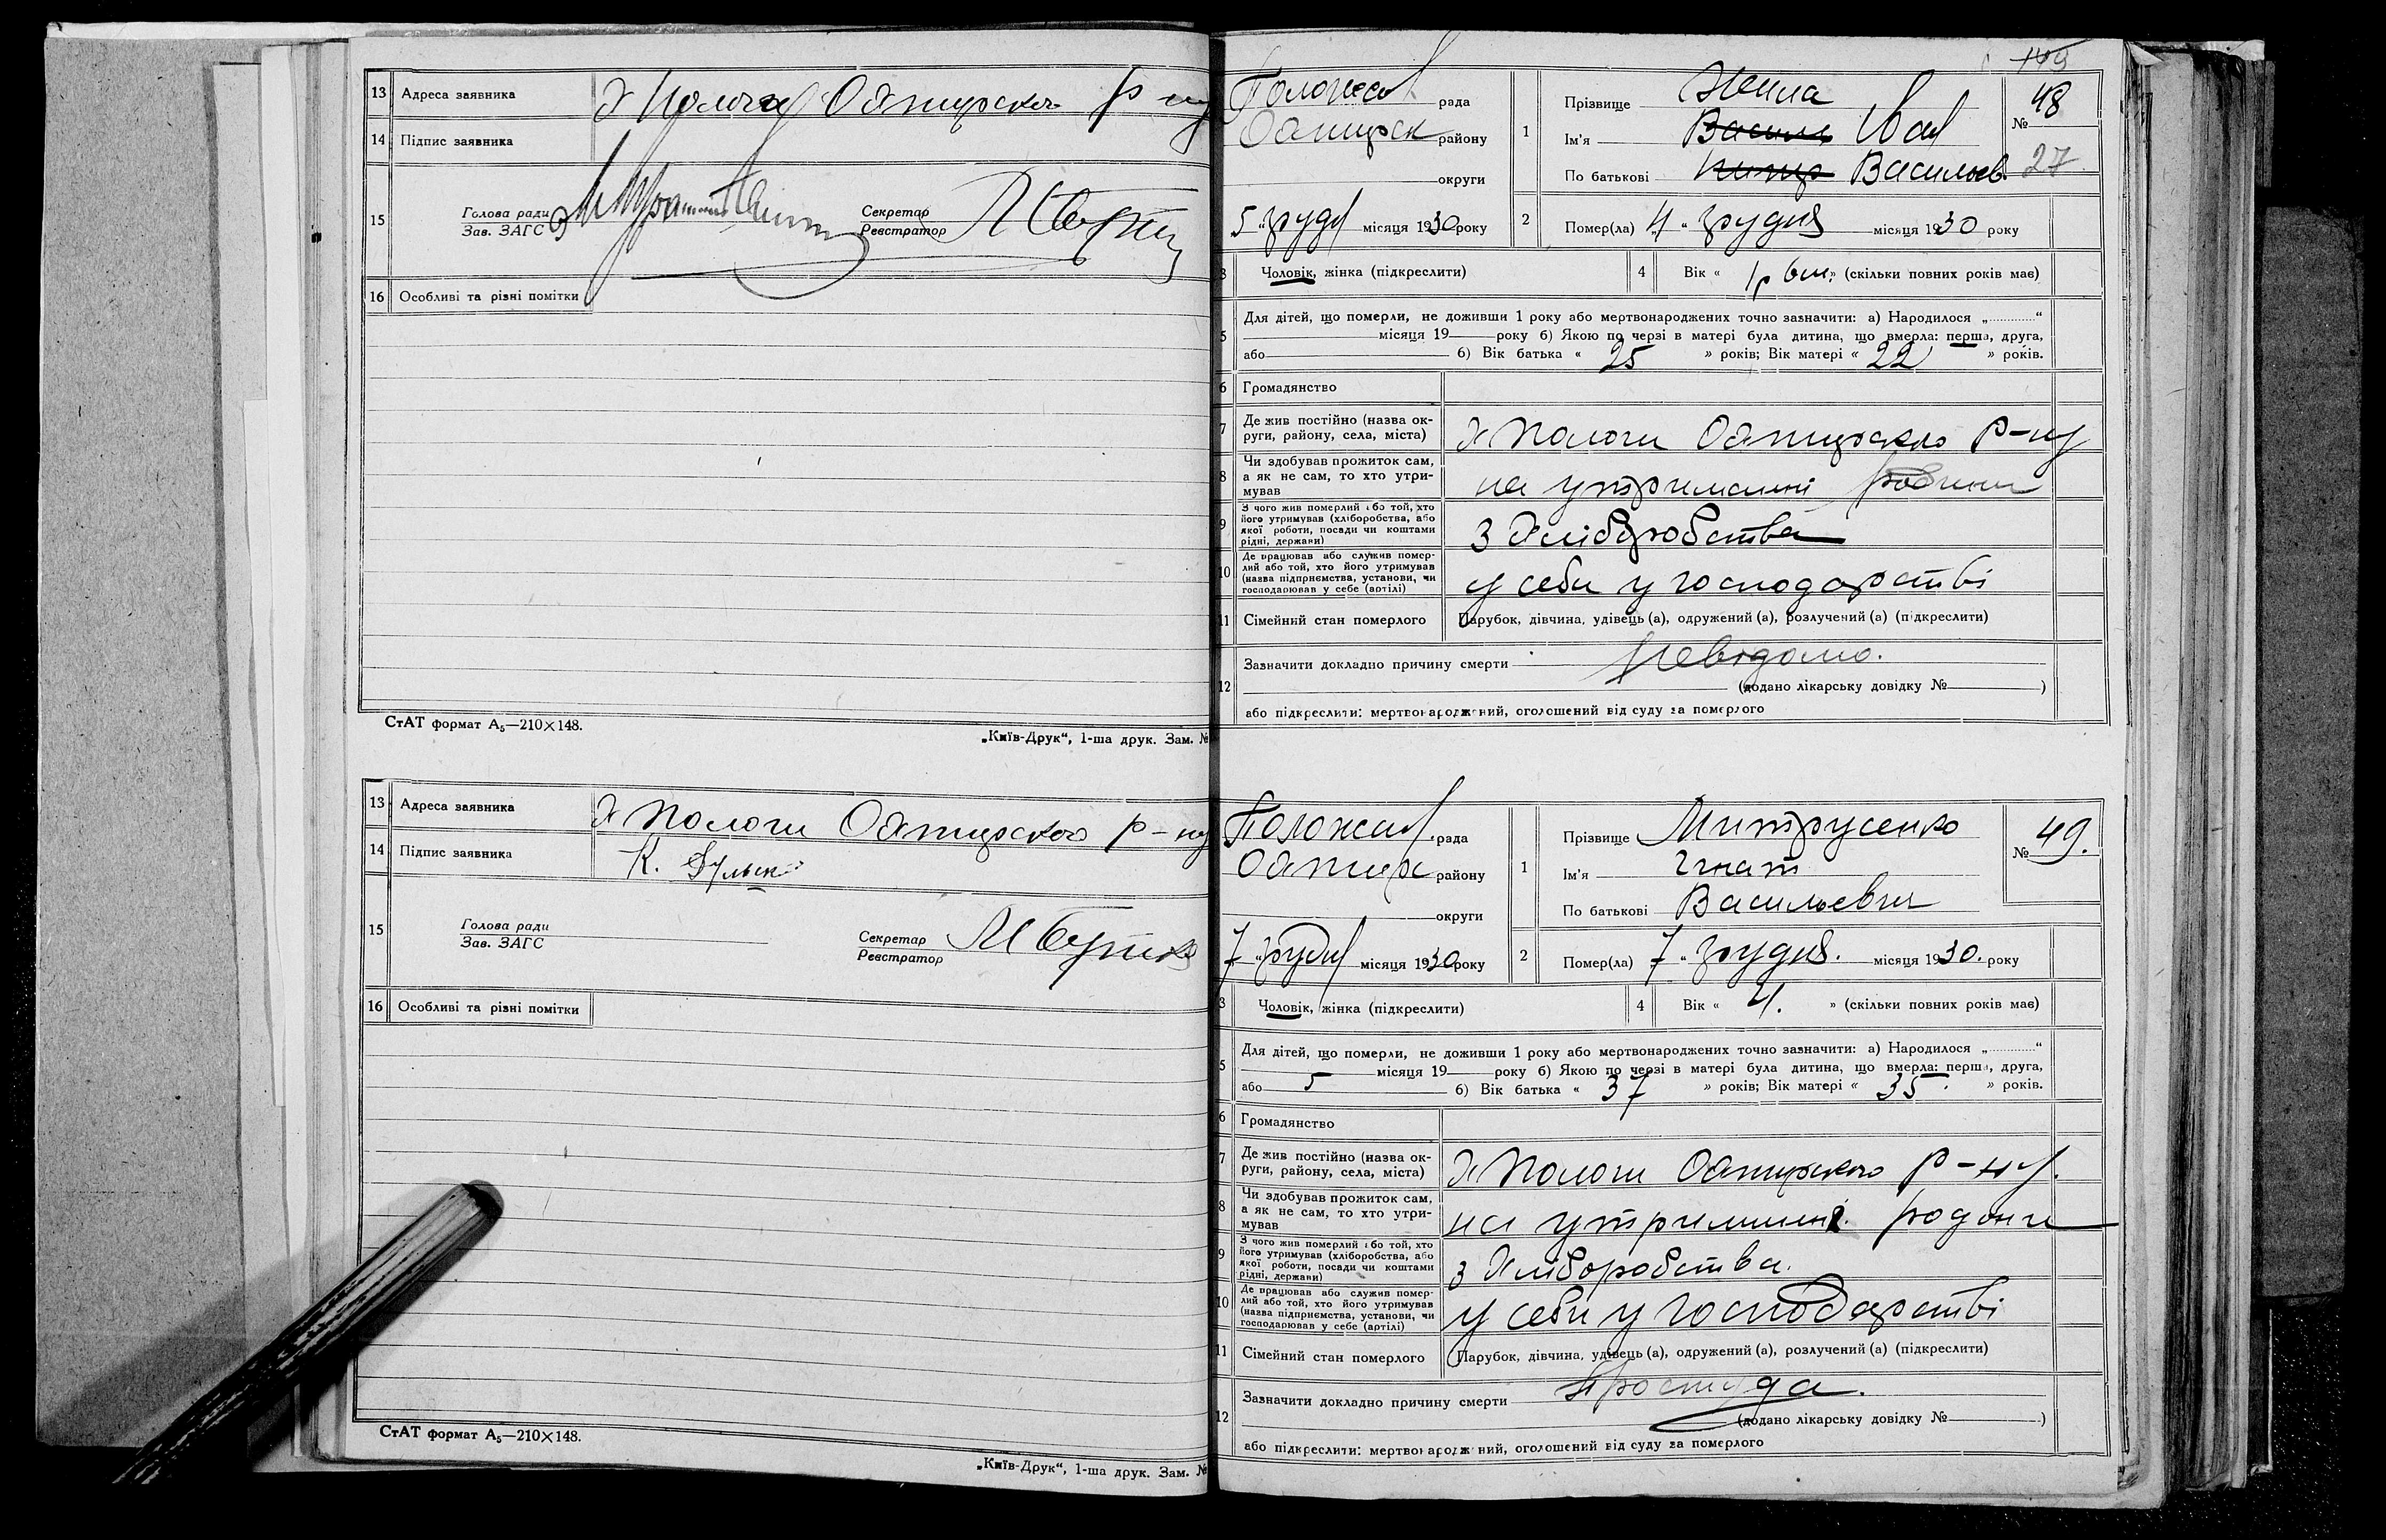 13 Адреса заявника х Пологи Охтирського р-ну
14 Підпис заявника
15 Голова ради
Зав. ЗАГС
Секретар
Реєстратор
16 Особливі та різні помітки
СтАТ формат А₅—210×148.
„Київ-Друк“, 1-ша друк. Зам. №
13 Адреса заявника х Пологи Охтирського р-ну
14 Підпис заявника К.
15 Голова ради
Зав. ЗАГС
Секретар
Реєстратор
16 Особливі та різні помітки
СтАТ формат А₅—210×148.
„Київ-Друк“, 1-ша друк. Зам. №
149
рада
Охтирск району
округи
5 „ грудн місяця 1930 року
1 Прізвище
Ім'я Василь Иван
По батькові Васильев.
№ 48
27
2 Помер(ла) „4“ грудня місяця 1930 року
3 Чоловік, жінка (підкреслити)
4 Вік « 1 р 6 м. » (скільки повних років має)
5 Для дітей, що померли, не доживши 1 року або мертвонароджених точно зазначити: а) Народилося „............“
місяця 19 року б) Якою по черзі в матері була дитина, що вмерла: перша, друга,
або б) Вік батька « 25 » років; Вік матері « 22 » років.
6 Громадянство
7 Де жив постійно (назва округи, району, села, міста) х Пологи Охтирсько р-ну
8 Чи здобував прожиток сам,
а як не сам, то хто утримував на утриманні родини
9 З чого жив померлий або той, хто
його утримував (хліборобства, або
якої роботи, посади чи коштами
рідні, держави) з Хліборобства
10 Де працював або служив померлий або той, хто його утримував
(назва підприємства, установи, чи
господарював у себе (артілі) у себи у господарстві
11 Сімейний стан померлого Парубок, дівчина, удівець (а), одружений (а), розлучений (а) (підкреслити)
12 Зазначити докладно причину смерти Невідомо.
(додано лікарську довідку № )
або підкреслити: мертвонароджений, оголошений від суду за померлого
рада
району
округи
7 „ грудн місяця 1930 року
1 Прізвище Митрусенко
Ім'я Гнат
По батькові Васильевич
№ 49.
2 Помер(ла) 7 “ грудня. місяця 1930. року
3 Чоловік, жінка (підкреслити)
4 Вік « 4. » (скільки повних років має)
5 Для дітей, що померли, не доживши 1 року або мертвонароджених точно зазначити: а) Народилося „............“
місяця 19 року б) Якою по черзі в матері була дитина, що вмерла: перша, друга,
або 5 б) Вік батька « 37 » років; Вік матері « 35. » років.
6 Громадянство
7 Де жив постійно (назва округи, району, села, міста) х Пологи Охтирсько р-ну.
8 Чи здобував прожиток сам,
а як не сам, то хто утримував на утриманні родини
9 З чого жив померлий або той, хто
його утримував (хліборобства, або
якої роботи, посади чи коштами
рідні, держави) з Хліборобства.
10 Де працював або служив померлий або той, хто його утримував
(назва підприємства, установи, чи
господарював у себе (артілі) у себи у господарстві
11 Сімейний стан померлого Парубок, дівчина, удівець (а), одружений (а), розлучений (а) (підкреслити)
12 Зазначити докладно причину смерти простуда.
(додано лікарську довідку № )
або підкреслити: мертвонароджений, оголошений від суду за померлого